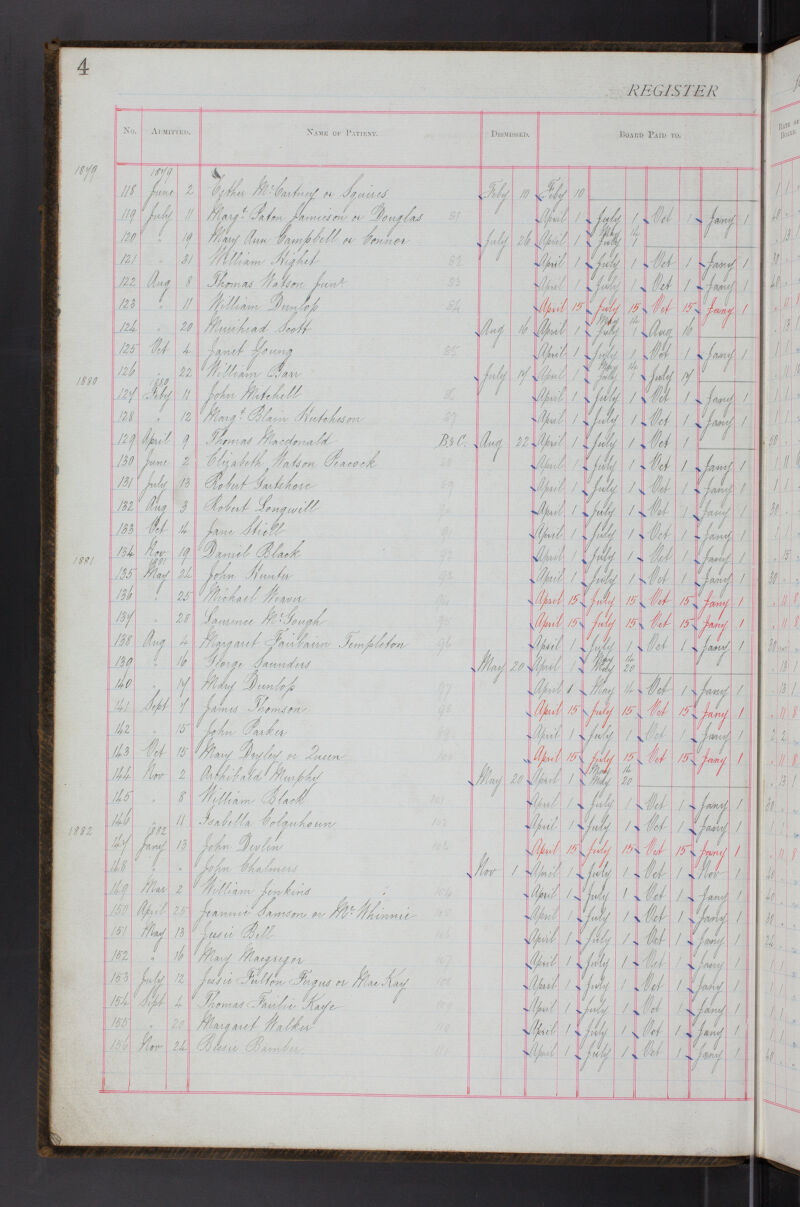 4
REGISTER
No. ADMITTED. NAME OF PATIENT. DISMISSED. BOARD PAID TO.
1879 1879
118 June 2 Esther McCartney or Squires Feby 10 Feby 10
119 July 11 Margt. Paton Jamieson or Douglas 81 April 1 July 1 Oct 1 Jany 1
120 " 19 Mary Ann Campbell or Connor July 26 April 1 July 1 May 14
121 " 31 William Highet 82 April 1 July 1 Oct 1 Jany 1
122 Aug 8 Thomas Watson Junr 83 April 1 July 1 Oct 1 Jany 1
123 " 11 William Dunlop 84 April 15 July 15 Oct 15 Jany 1
124 " 20 Muirhead Scott Aug 16 April 1 July 1 May 14 Aug 16
125 Oct 4 Janet Young 85 April 1 July 1 Oct 1 Jany 1
126 " 22 William Barr July 17 April 1 July 1 May 14 July 17
1880 1880
127 Feby 11 John Mitchell 86 April 1 July 1 Oct 1 Jany 1
128 " 12 Margt. Blain Hutcheson 87 April 1 July 1 Oct 1 Jany 1
129 April 9 Thomas Macdonald B&C. Aug 22 April 1 July 1 Oct 1
130 June 2 Elizabeth Watson Peacock 88 April 1 July 1 Oct 1 Jany 1
131 July 13 Robert Gartshore 89 April 1 July 1 Oct 1 Jany 1
132 Aug 3 Robert Longwill 90 April 1 July 1 Oct 1 Jany 1
133 Oct 14 Jane Stiell 91 April 1 July 1 Oct 1 Jany 1
134 Nov 19 Daniel Black 92 April 1 July 1 Oct 1 Jany 1
1881 1881
135 May 24 John Hunter 93 April 1 July 1 Oct 1 Jany 1
136 " 25 Michael Weaver 94 April 15 July 15 Oct 15 Jany 1
137 " 28 Laurence McGough 95 April 15 July 15 Oct 15 Jany 1
138 Aug 4 Margaret Fairbairn Templeton 96 April 1 July 1 Oct 1 Jany 1
139 " 16 George Saunders May 20 April 1 May 14 May 20
140 " 17 Mary Dunlop 97 April 1 May 14 Oct 1 Jany 1
141 Sept 7 James Thomson 98 April 15 July 15 Oct 15 Jany 1
142 " 15 John Parker 99 April 1 July 1 Oct 1 Jany 1
143 Oct 15 Mary Deyley or Queen 100 April 15 July 15 Oct 15 Jany 1
144 Nov 2 Archibald Murphy May 20 April 1 May 14 May 20
145 " 8 William Black 101 April 1 July 1 Oct 1 Jany 1
146 " 11 Isabella Colquhoun 102 April 1 July 1 Oct 1 Jany 1
1882 1882
147 Jany 13 John Devlin April 15 July 15 Oct 15 Jany 1
148 " " John Chalmers Nov 1 April 1 July 1 Oct 1 Nov 1
149 Mar 2 William Jenkins 104 April 1 July 1 Oct 1 Jany 1
150 April 25 Jeannie Samson or McWhinnie 105 April 1 July 1 Oct 1 Jany 1
151 May 13 Jessie Bell 106 April 1 July 1 Oct 1 Jany 1
152 " 16 Mary Macgregor 107 April 1 July 1 Oct 1 Jany 1
153 July 12 Jessie Fulton Fergus or MacKay 108 April 1 July 1 Oct 1 Jany 1
154 Sept 4 Thomas Fairlie Kaye 109 April 1 July 1 Oct 1 Jany 1
155 " 20 Margaret Walker 110 April 1 July 1 Oct 1 Jany 1
156 Nov 24 Bessie Bamber 111 April 1 July 1 Oct 1 Jany 1